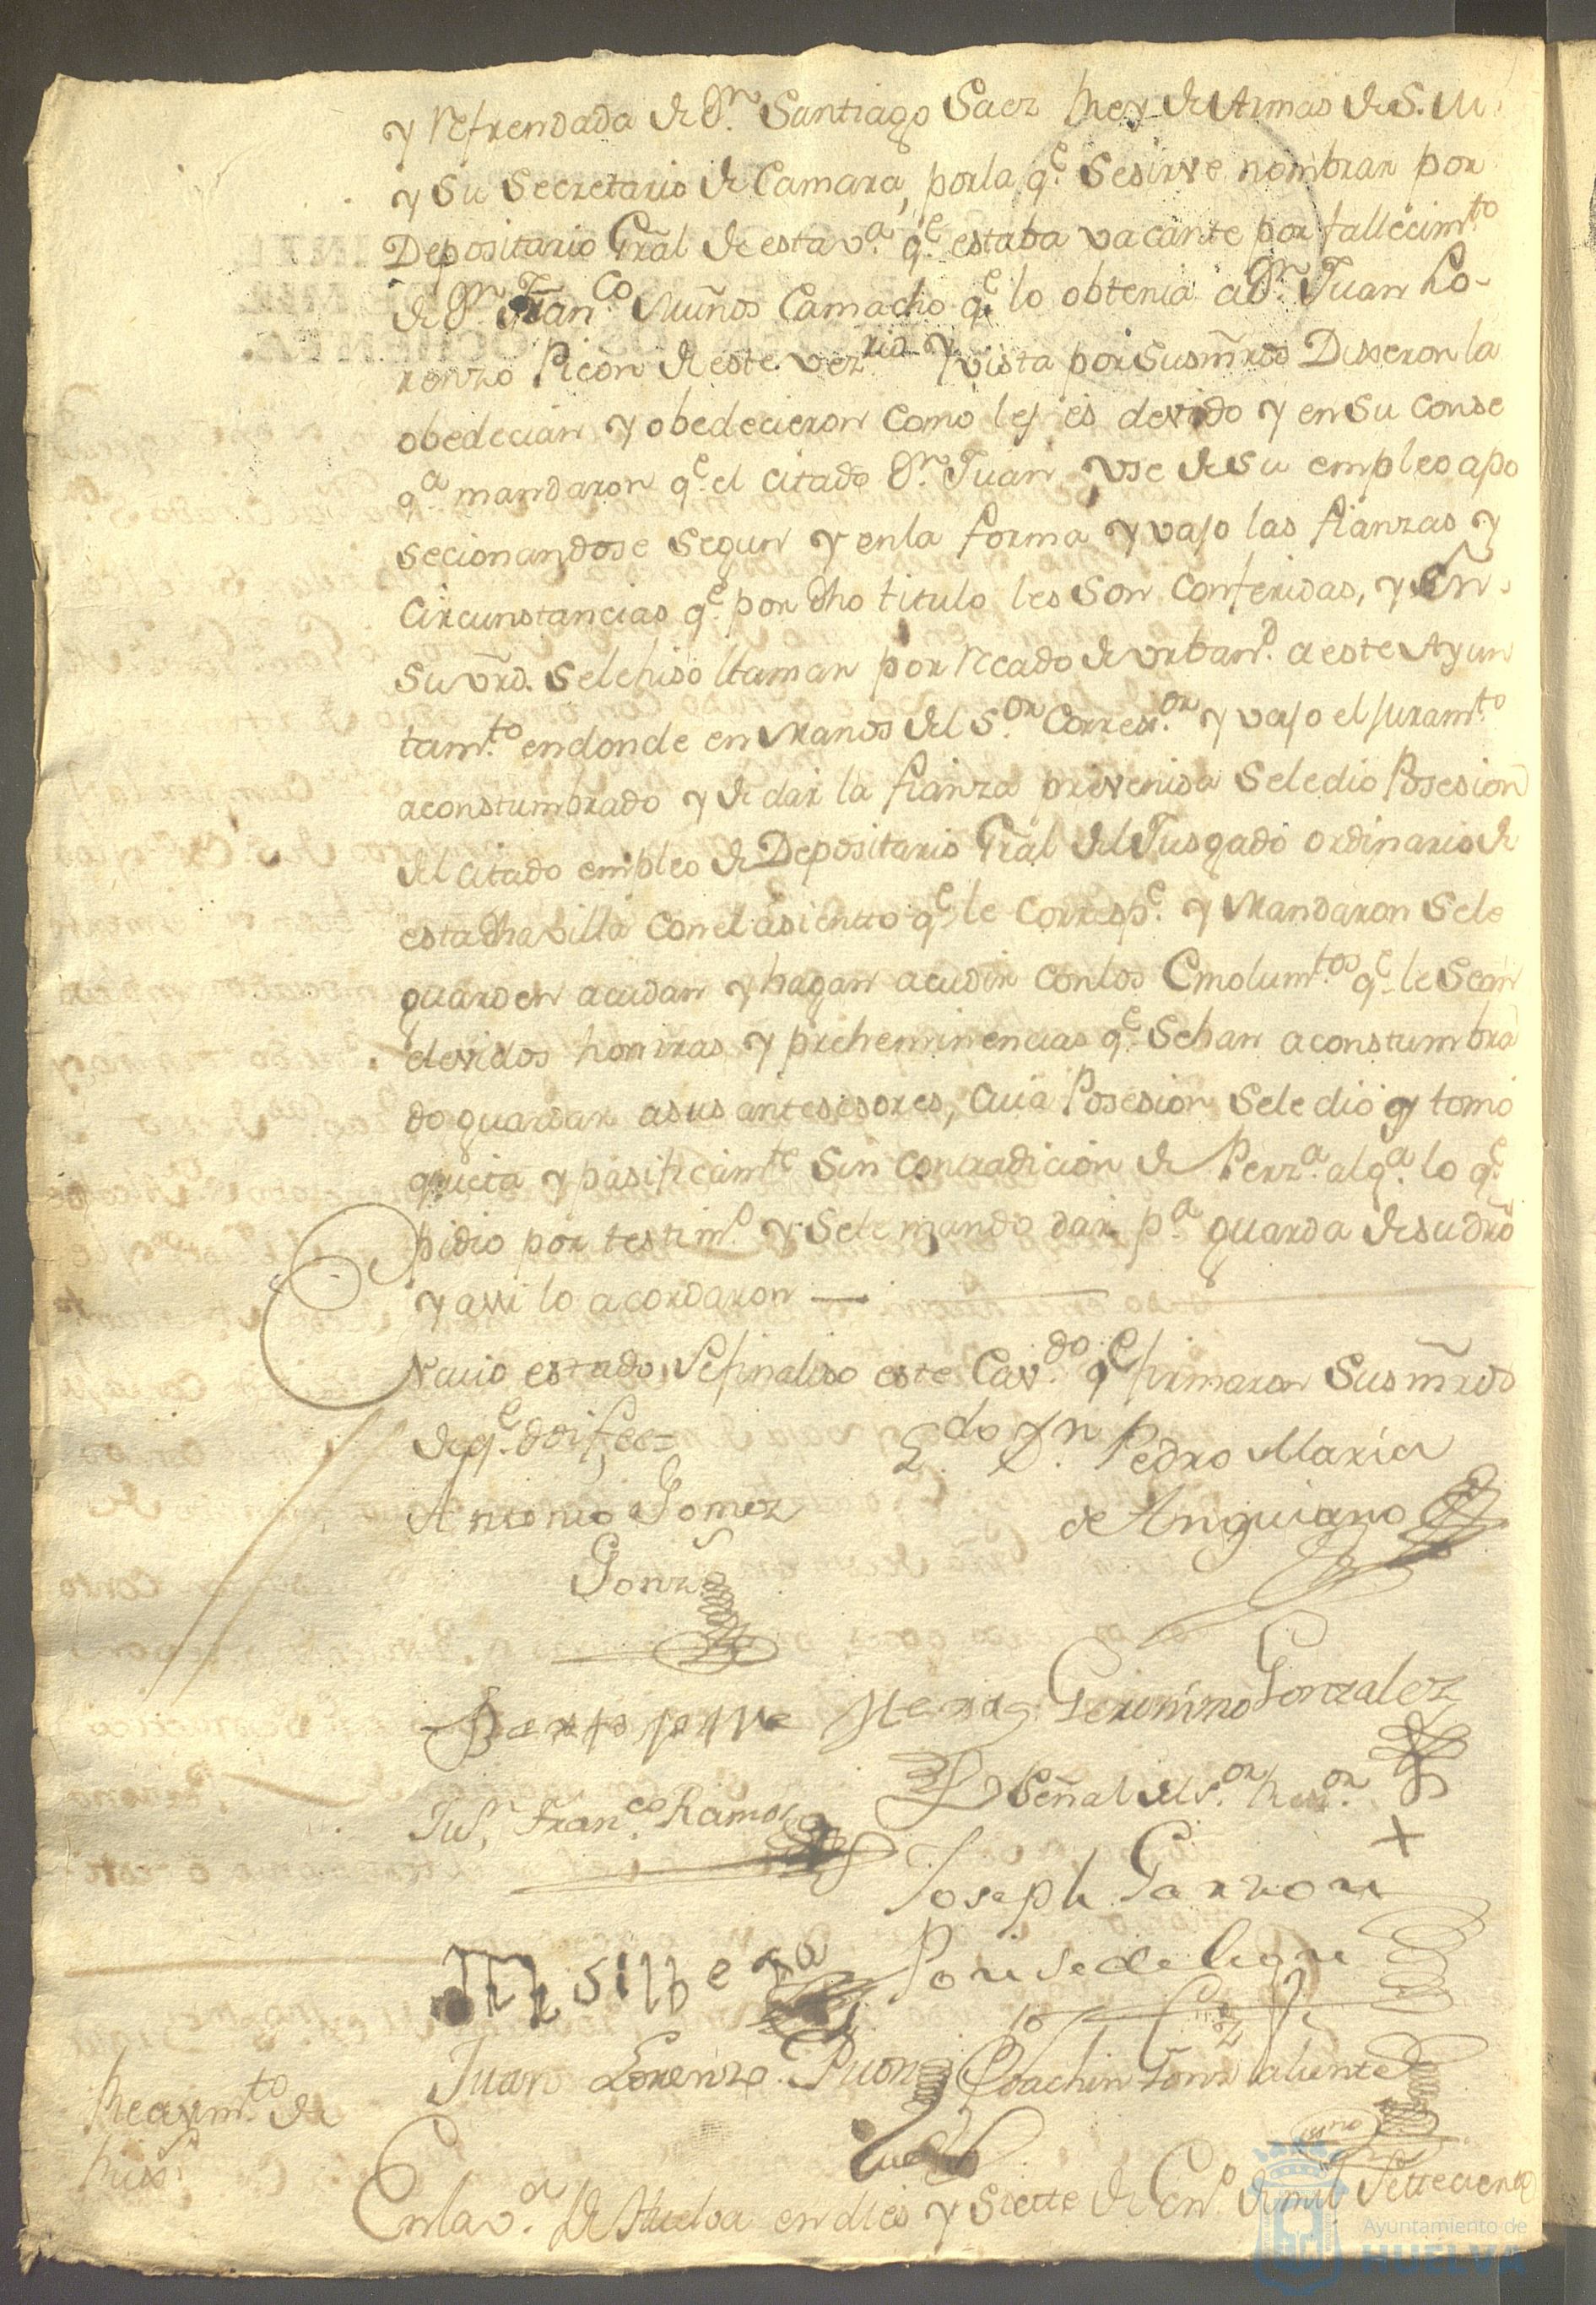 y Refrendada de Dn. Santiago Saez Rey de Armas de S. M.
y Su Secretario de Camara, porla qe. Sesirve nombrar por
Depositario Gral de esta va. qe. estaba vacante por fallecimto
de Dn. Franco. Muños Camacho qe lo obtenia a Dn. Juan Lo-
renzo Picon de este vez.rio y vista por Susmrds Dixeron la
obedecian y obedecieron Como les es devido y en Su Conse
qa mandaron qe. el citado Dn. Juan vse de Su empleo apo
secionandose Segun y enla forma y vajo las fianzas y
Circunstancias qe. por dho titulo les Son Conferidas, y En
Su vrd. Selehiso llamar por Recado de vrban.d aeste Ayun
tam.to endonde en Manos del S.or Corregr.or y vajo el juram.to
aconstumbrado y de dar la fianza prevenida Seledio Posesion
del citado empleo de Depositario Gral del Jusgado ordinario de
esta dha villa Conel asientto qe le Corresp.e y Mandaron Sele
guarden acudan y hagan acudir Conlos Emolum.tos qe le Sean
devidos honrras y preheminencias qe. Sehan aconstumbra
do guardar asus antesesores, Cuia Posesion Sele dio y tomo
quieta y pasificam.te Sin contradicion de Perz.a alg.a lo qe
pidio por testim.o y Sele mando dar p.a guarda desudro
y assi lo acordaron —
Yauio estado Sefinaliso este Cav.do qe firmaron Susmrds
deqe. doi fee=
L.do Dn. Pedro Maria
de Anguiano
Antonio Gomez
Gonz
Geronimo Gonzalez
Señal del S.or Rex.or
+
Jun. Franco. Ramos
Joseph Garzon
Ponse de leon
Juan Lorenzo Picon
Joachin Gonz
Recivim.to de
Enla v.a de Huelva en dies y Siette de En.o de mil Settecientos
Ayuntamiento de
HUELVA